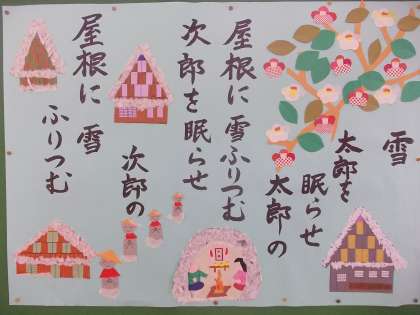 雪
太郎を
眠らせ
太郎の
屋根に雪ふりつむ
次郎を眠らせ
次郎の
屋根に雪
ふりつむ